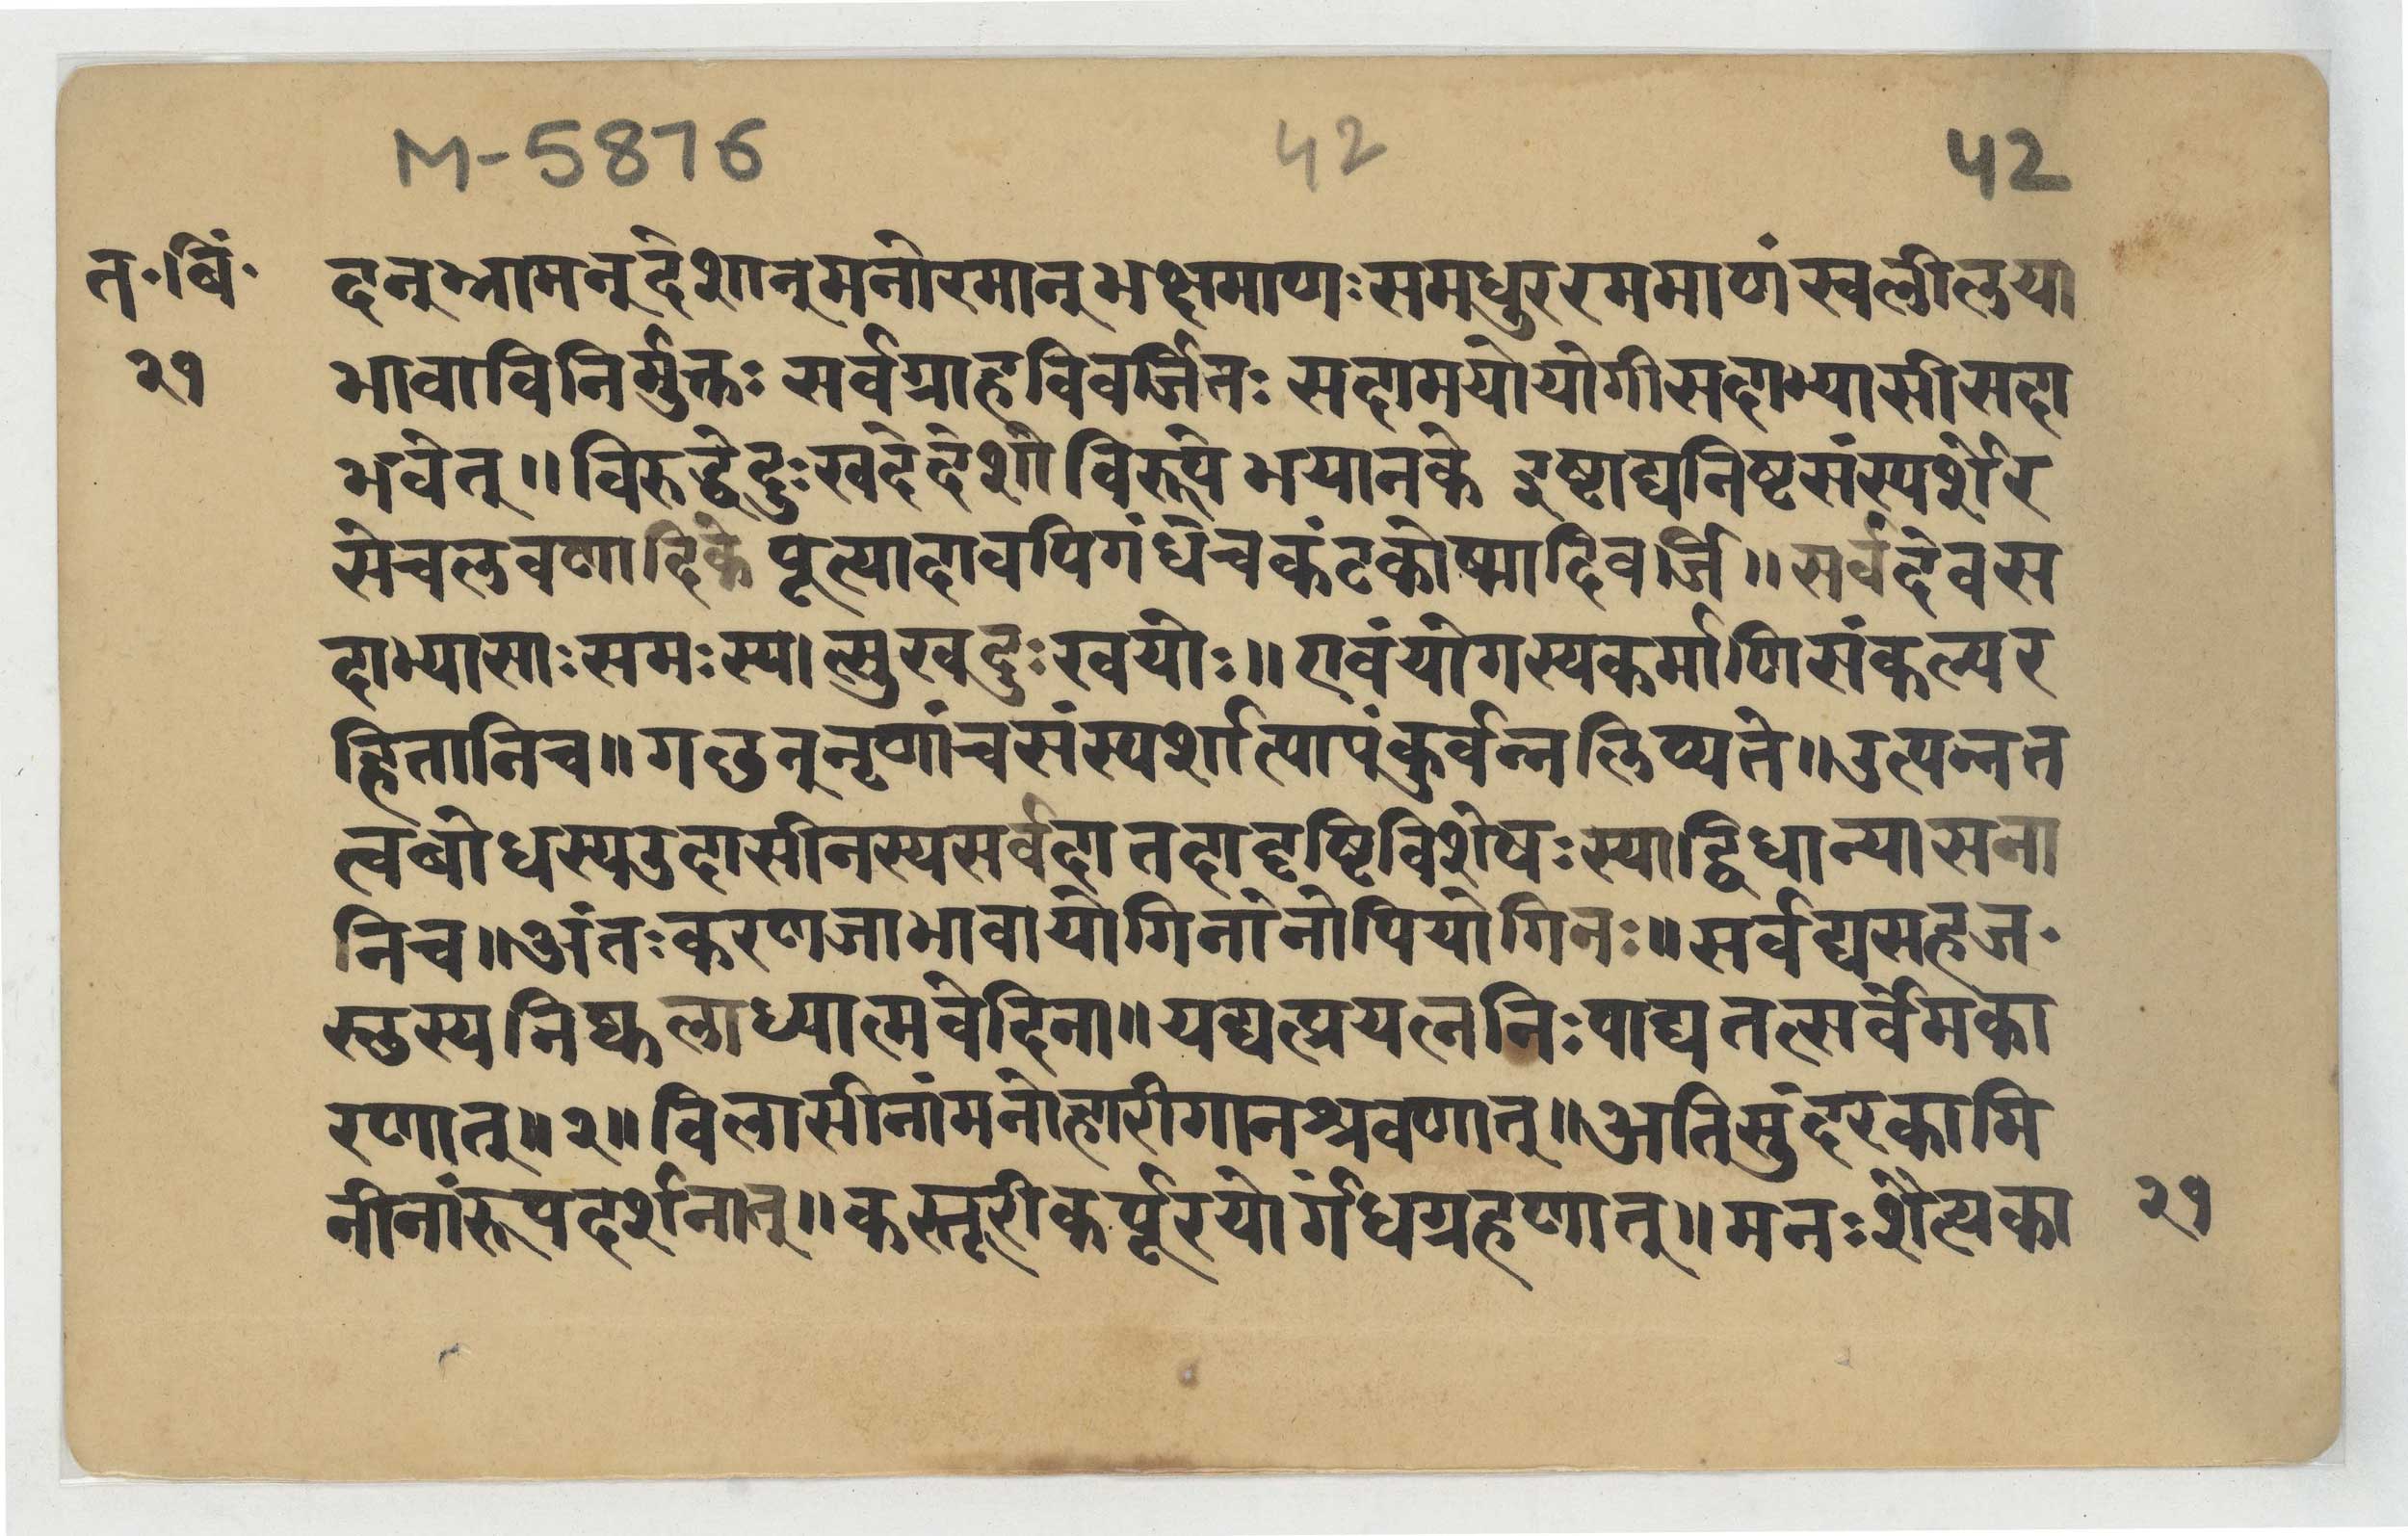 M-5876 42 42
त॰बिं॰ दनुभ्रामनुदेशानुमनोरमानुभक्षमाणःसमधुररममाणंस्वलीलया
२१ भावाविनिर्मुक्तः सर्वग्राहविवर्जितः सदामयोयोगीसदाभ्यासीसदा
भवेत्॥विरुद्धेदुःखदेदेशो विरूपे भयानके इष्टाद्यनिष्टसंस्पर्शेर
सेचलवणादिके पूत्यादावपिगंधेचकंटकोष्मादिवर्जि॥सर्वदैवस
दाभ्यासाःसमःस्यात्सुखदुःखयोः॥एवंयोगस्यकर्माणिसंकल्पर
हितानिच॥गछनुनृणांचसंस्पर्शात्पापंकुर्वन्नलिप्यते॥उत्पन्नत
त्वबोधस्यउदासीनस्यसर्वदा तदादृष्टिविशेषःस्याद्विधान्यासना
निच॥अंतःकरणजाभावायोगिनांनोपियोगिनः॥सर्वद्यसहज॰
स्तस्य निष्कलाध्यात्मवेदिना॥यद्यत्प्रयत्ननिःपाद्य तत्सर्वेमका
रणात्॥२॥विलासीनांमनोहारीगानश्रवणात्॥अतिसुंदरकामि
नीनांरूपदर्शनात्॥कस्तूरीकर्पूरयोर्गंधग्रहणात्॥मनःशैत्यका २१